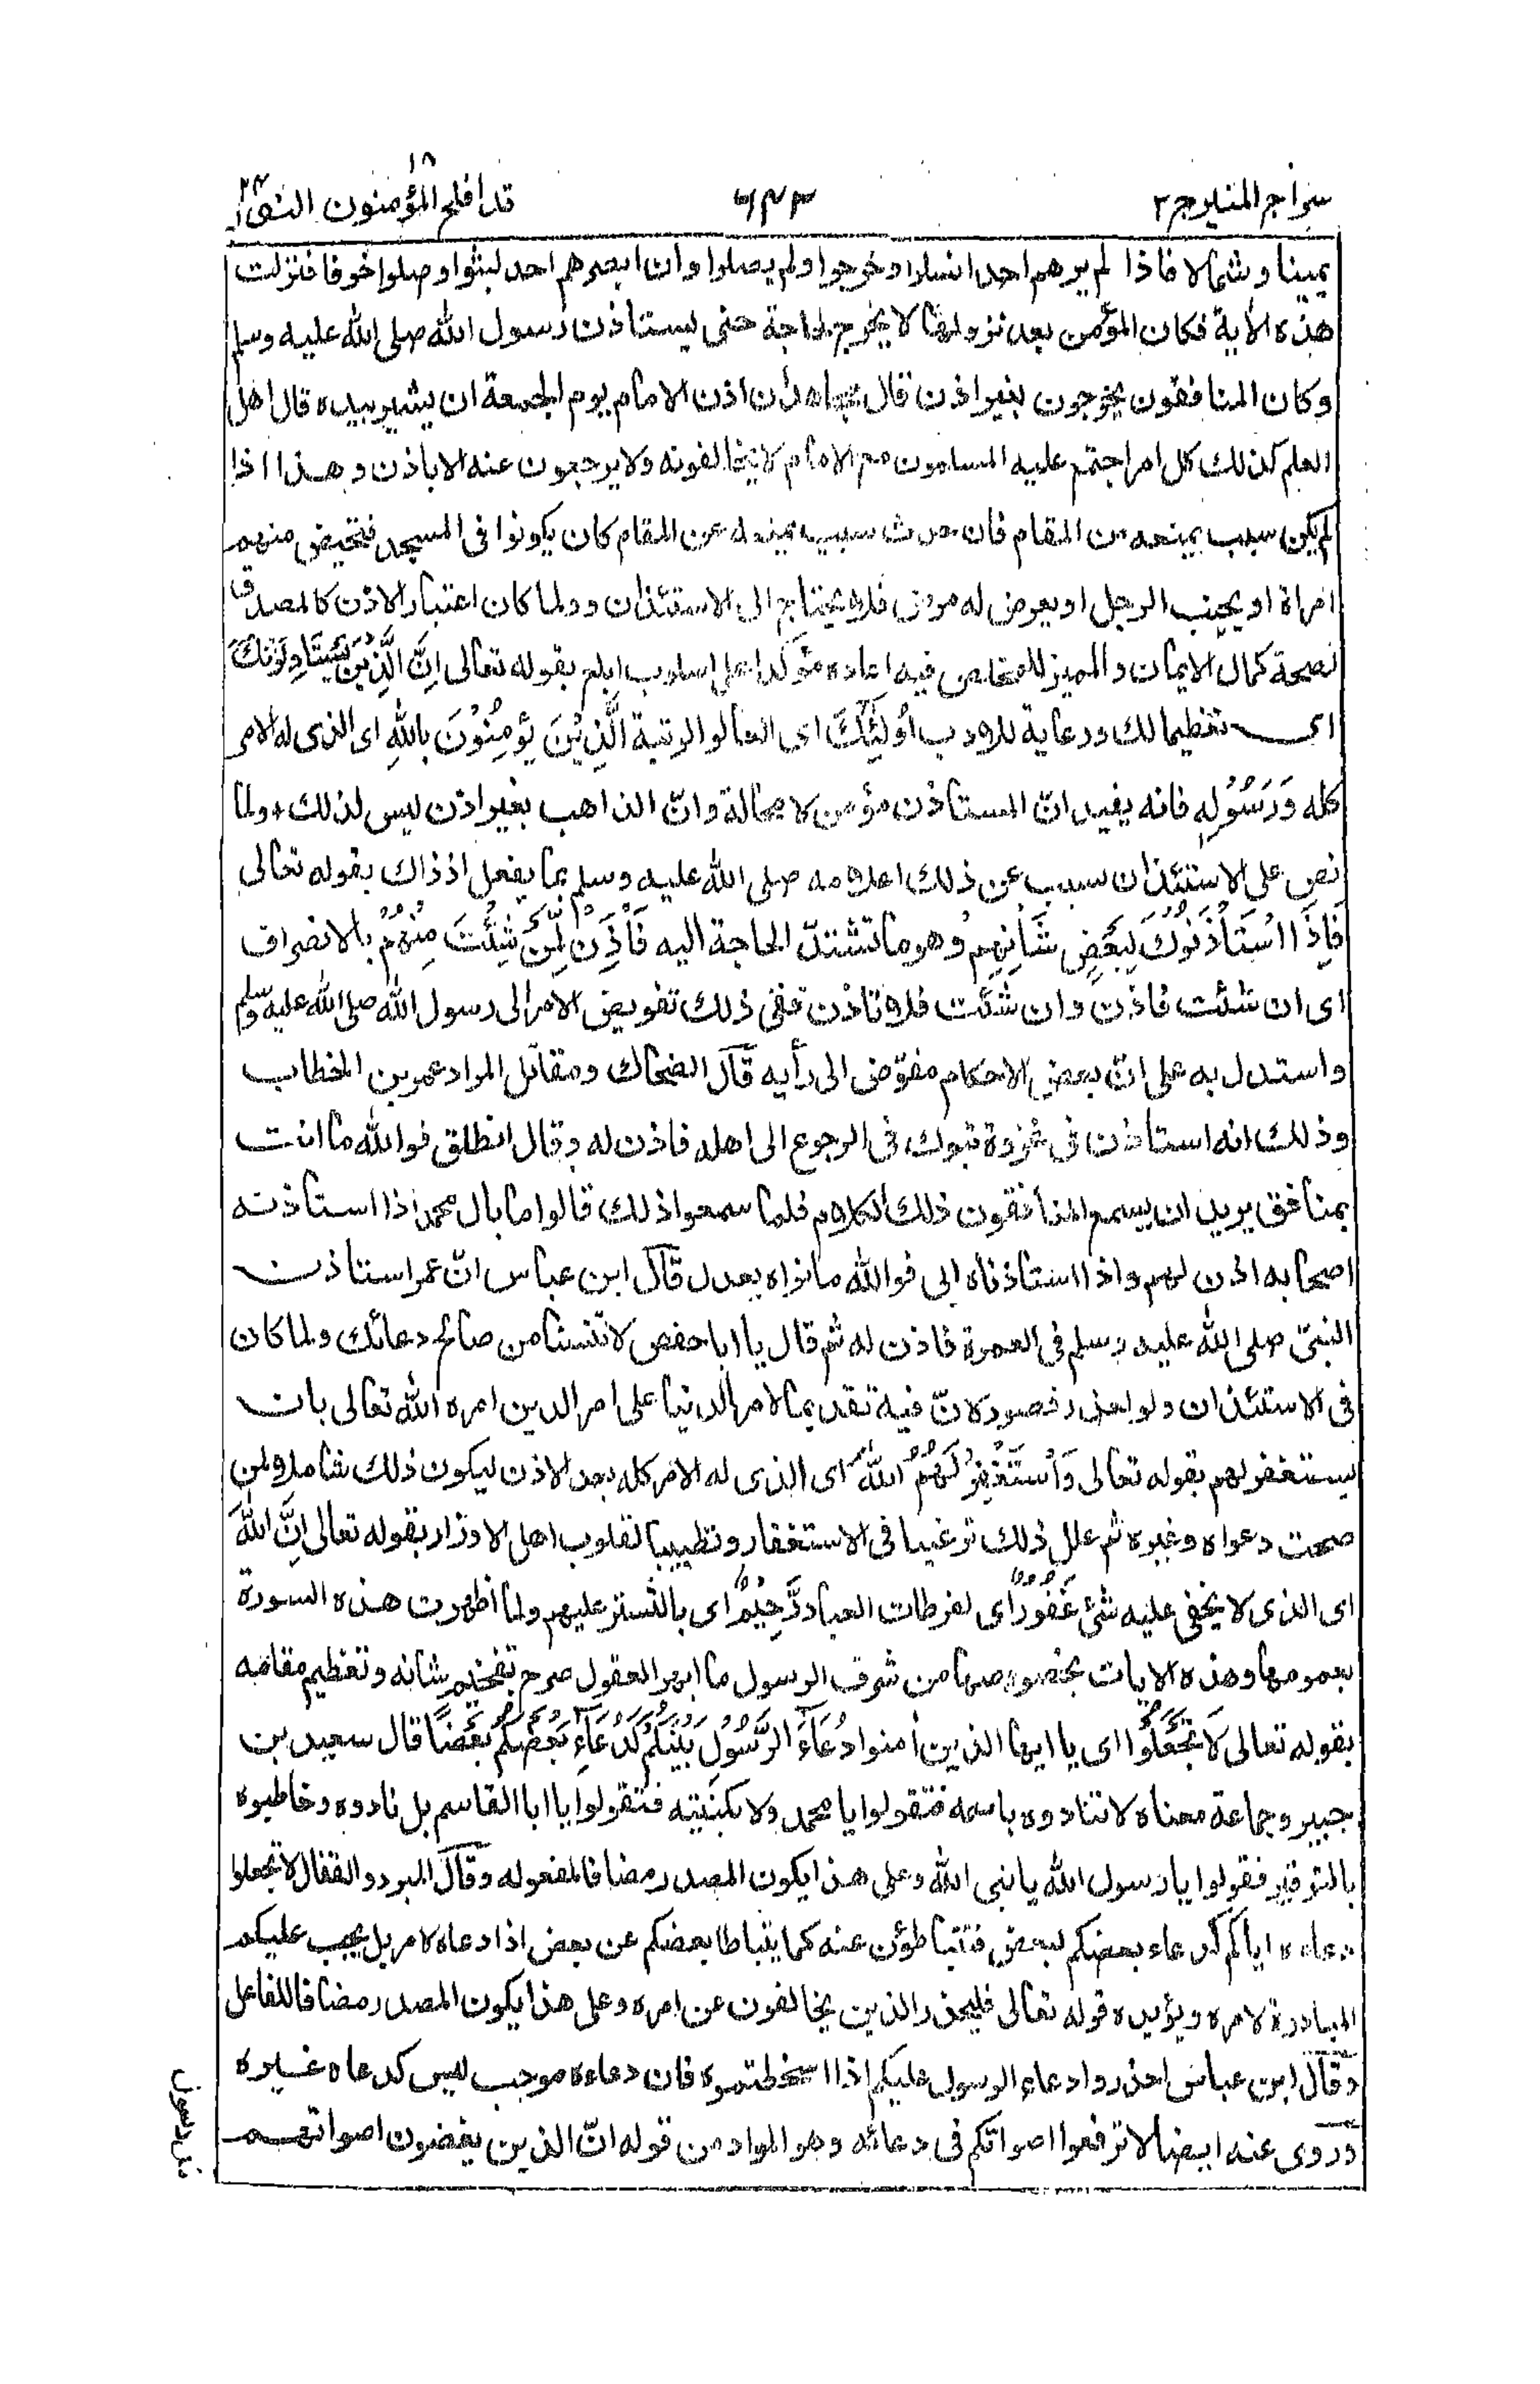 سراج المنير ج ٢
٦٤٣
قد افلح المؤمنون ١٨ النور ٢٤
يمينا وشمالا فاذا لم يرهم احد انسلوا وخرجوا ولم يصلوا وان ابصرهم احد لبثوا وصلوا خوفا فنزلت
هذه الأية فكان المؤمن بعد نزولها لا يخرج لحاجة حتى يستاذن رسول الله صلى الله عليه وسلم
وكان المنافقون يخرجون بغير اذن قال مجاهد أن اذن الامام يوم الجمعة ان يشير بيده قال اهل
العلم كذلك كل امر اجتمع عليه المسلمون مع الامام لا يخالفونه ولا يرجعون عنه الا باذن وهذا اذا
لم يكن سبب يمنعه من المقام فان حدث سبب يمنعه عن المقام كان يكونوا فى المسجد فتحيض منهم
امراة او يجنب الرجل او يعرض له مرض فلا يحتاج الى الاستئذان ولما كان اعتبار الاذن كالمصداق
لصحة كمال الايمان والمميز للمخلص فيه اعاده مؤكدا على اسلوب ابلغ بقوله تعالى اِنَّ الَّذِيْنَ يَسْتَاْذِنُوْنَكَ
اى تعظيما لك ورعاية للادب اُولٰٓئِكَ اى العالو الرتبة الَّذِيْنَ يُؤْمِنُوْنَ بِاللّٰهِ اى الذى له الامر
كله وَرَسُوْلِهٖ فانه يفيد انّ المستاذن مؤمن لا محالة وانّ الذاهب بغير اذن ليس لذلك ولما
نص على الاستئذان سبب عن ذلك اعلامه صلى الله عليه وسلم بما يفعل اذ ذاك بقوله تعالى
فَاِذَا اسْتَاْذَنُوْكَ لِبَعْضِ شَاْنِهِمْ وهو ما تشتدّ الحاجة اليه فَاْذَنْ لِّمَنْ شِئْتَ مِنْهُمْ بالانصراف
اى ان شئت فاذن وان شئت فلا تاذن ففى ذلك تفويض الامر الى رسول الله صلى الله عليه وسلم
واستدل به على انّ بعض الاحكام مفوّض الى رأيه قال الضحاك ومقاتل المراد عمر بن الخطاب
وذلك انه استاذن فى غزوة تبوك فى الرجوع الى اهله فاذن له وقال انطلق فوالله ما انت
بمنافق يريد ان يسمع المنافقون ذلك الكلام فلما سمعوا ذلك قالوا ما بال محمد اذا استاذنه
اصحابه اذن لهم واذا استاذناه ابى فوالله ما نراه يعدل قال ابن عباس انّ عمر استاذن
النبىّ صلى الله عليه وسلم فى العمرة فاذن له ثم قال يا ابا حفص لا تنسنا من صالح دعائك ولما كان
فى الاستئذان ولو لعذر قصور لانّ فيه تقديما لامر الدنيا على امر الدين امره الله تعالى بان
يستغفر لهم بقوله تعالى وَاسْتَغْفِرْ لَهُمُ اللّٰهَ اى الذى له الامر كله بعد الاذن ليكون ذلك شاملا لمن
صحت دعواه وغيره ثم علل ذلك ترغيبا فى الاستغفار وتطييبا لقلوب اهل الاوزار بقوله تعالى اِنَّ اللّٰهَ
اى الذى لا يخفى عليه شئ غَفُوْرٌ اى لفرطات العباد رَّحِيْمٌ اى بالتستر عليهم ولما اظهرت هذه السورة
بعمومها وهذه الايات بخصوصها من شرف الرسول ما ابهر العقول صرح بتفخيم شانه وتعظيم مقامه
بقوله تعالى لَا تَجْعَلُوْا اى يا ايها الذين أمنوا دُعَآءَ الرَّسُوْلِ بَيْنَكُمْ كَدُعَآءِ بَعْضِكُمْ بَعْضًا قال سعيد بن
جبير وجماعة معناه لا تنادوه باسمه فتقولوا يا محمد ولا بكنيته فتقولوا يا ابا القاسم بل نادوه وخاطبوه
بالتوقير فقولوا يا رسول الله يا نبى الله وعلى هذا يكون المصدر مضافا لمفعوله وقال المبرد والقفال لا تجعلوا
دعاءه اياكم كدعاء بعضكم لبعض فتتباطؤن عنه كما يتباطا بعضكم عن بعض اذا دعاه لامر بل يجب عليكم
المبادرة لامره ويؤيده قوله تعالى فليحذر الذين يخالفون عن امره وعلى هذا يكون المصدر مضافا للفاعل
وقال ابن عباس احذروا دعاء الرسول عليكم اذا اسخطتموه فان دعاءه موجب ليس كدعاء غيره
وروى عنه ايضا لا ترفعوا اصواتكم فى دعائه وهو المراد من قوله انّ الذين يغضون اصواتهم
عند رسول